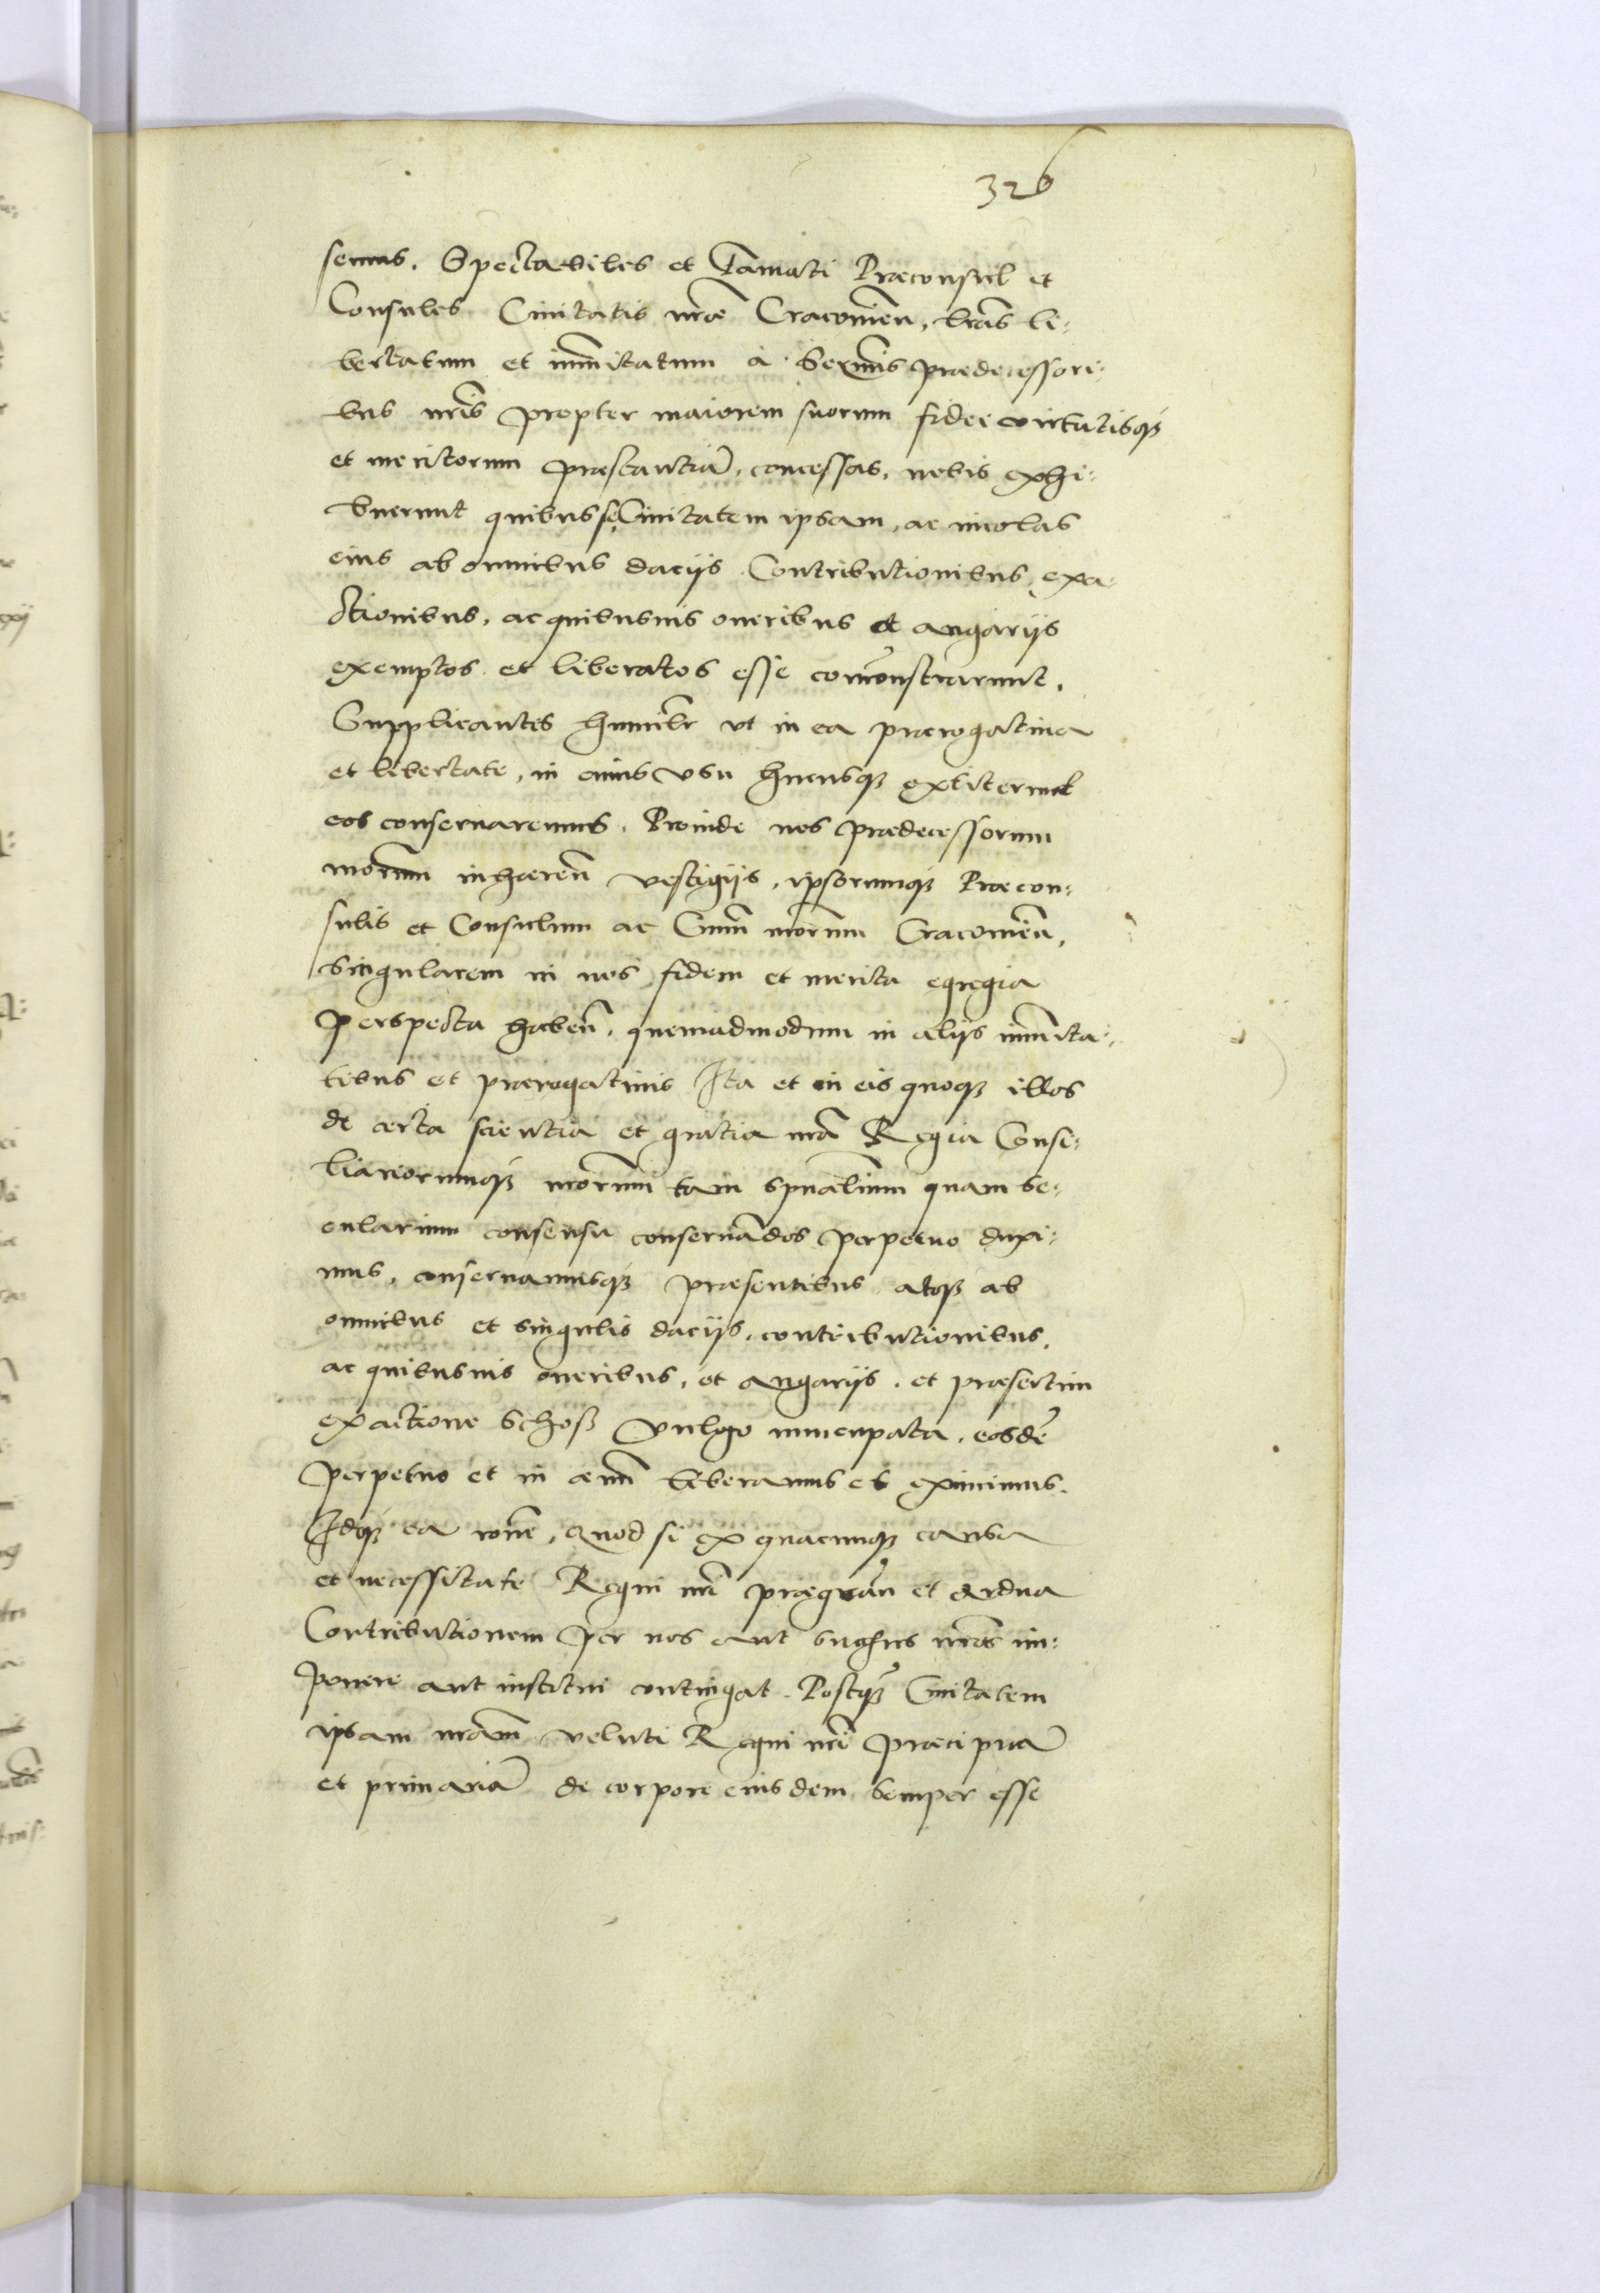 326
semus. Spectabiles et Famati Praeconsul et
Consules Ciuitatis nr̃ae Cracouien̄, lr̃as li:
bertatum et immũitatum à Serm̃is praedecessori:
bus nr̃is propter maiorem suorum fidei virtutisq̃
et meritorum praestantiã, concessas, nobis exhi:
buerunt quibus se, Ciuitatem ipsam, ac incolas
eius ab omnibus dacijs Contributionibus, exa:
ctionibus, ac quibusuis oneribus et angarijs
exemptos et liberatos esse com̃onstrarunt.
Supplicantes humilr̃ vt in ea praerogatiua
et libertate, in cuius vsu hucusq̃ extiterunt
eos conseruaremus. Proinde nos praedecessorum
nr̃orum inhaeren̄ vestigijs, ipsorumq̃ Praecon:
sulis et Consulum ac Ciuiũ nr̃orum Cracouien̄,
singularem in nos fidem et merita egregia
perspecta haben̄, quemadmodum in alijs immũita:
tibus et praerogatiuis Ita et in eis quoq̃ illos
de certa scientia et gratia nr̃a Regia Consi:
liariorumq̃ nr̃orum tam spũalium quam se:
cularium consensu conseruãdos perpetuo duxi:
mus, conseruamusq̃ praesentibus atq̃ ab
omnibus et singulis dacijs, contributionibus,
ac quibusuis oneribus, et angarijs, et praesertim
exactione Schoß vulgo nuncupata, eosdẽ
perpetuo et in aeuũ liberamus et eximimus.
Idq̃ ea rõne, Quod si ex quacunq̃ causa
et necessitate Regni nr̃i praegrãui et ardua
Contributionem per nos aut success nr̃os im:
ponere aut institui contingat. Postq̃ Ciuitatem
ipsam nr̃am veluti Regni nr̃i praecipuã
et primariã de corpore eiusdem semper esse